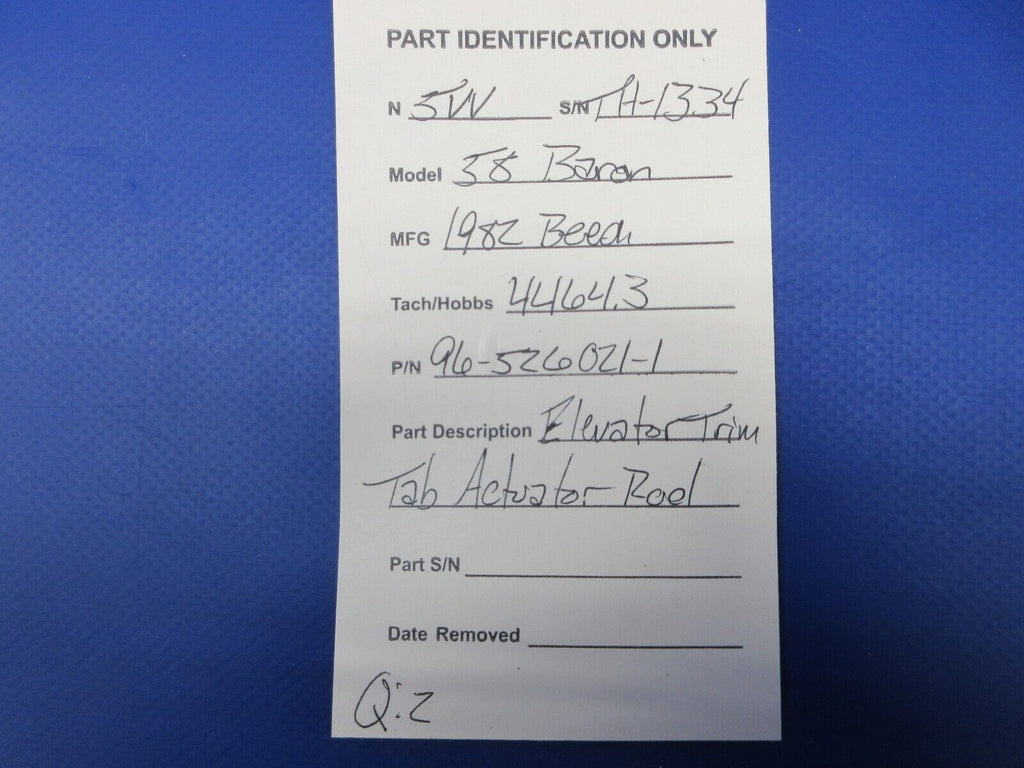 PART IDENTIFICATION ONLY
N 5VV S/N TH-1334
Model 58 Baron
MFG 1982 Beech
Tach/Hobbs 4464.3
P/N 96-526021-1
Part Description Elevator Trim
Tab Actuator Rod
Part S/N
Date Removed
Q:2